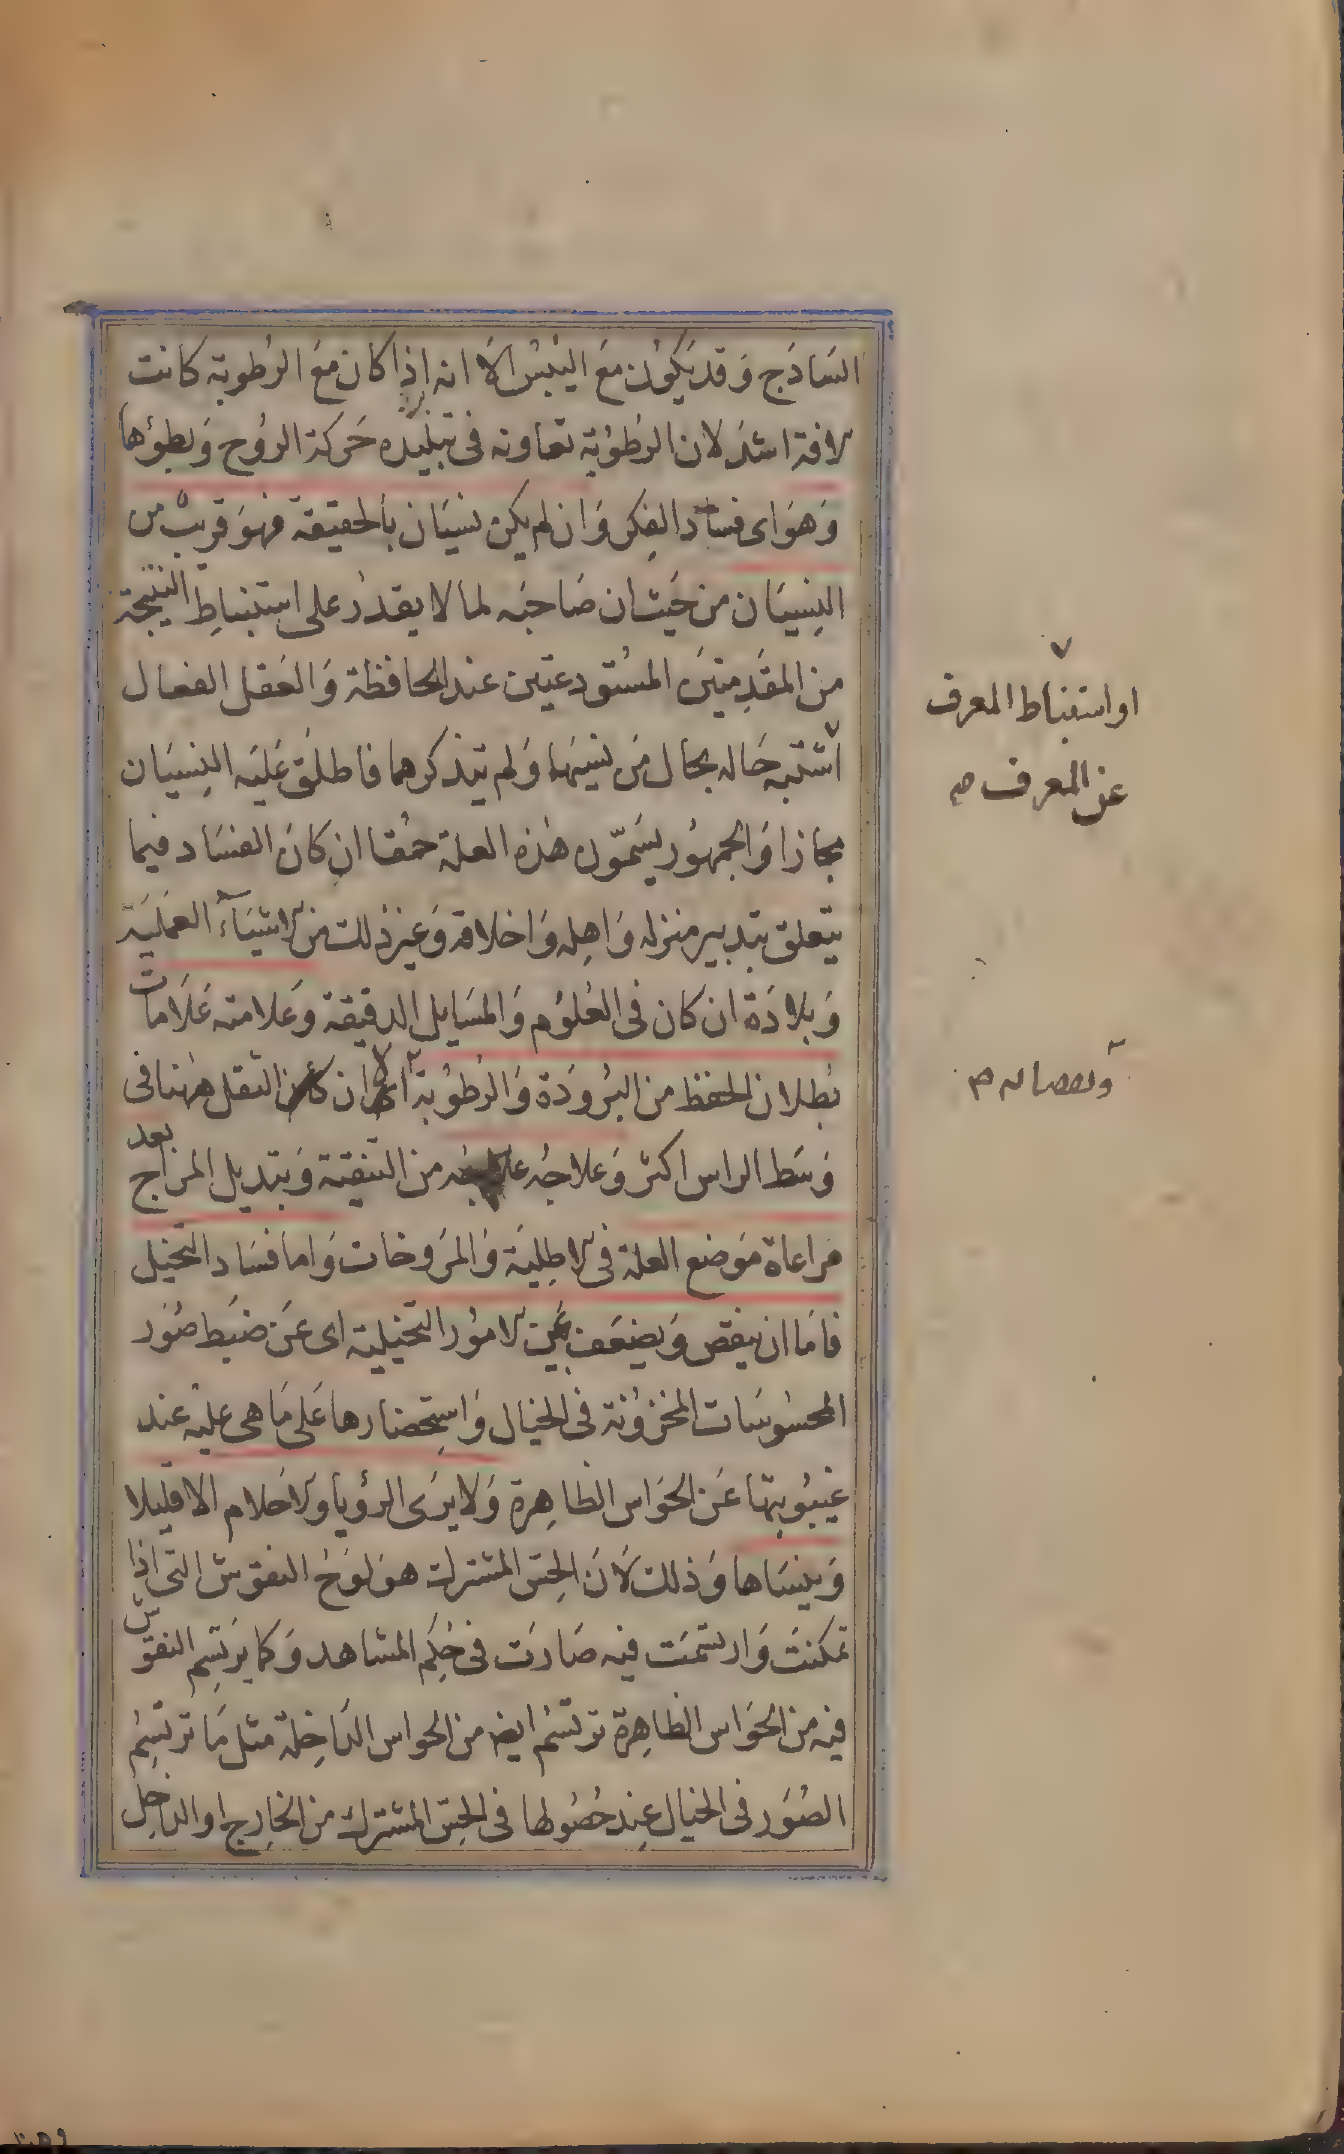 الساذج وقد يكون مع اليبس الا انه اذا كان مع الرطوبة كانت
الافة اشد لان الرطوبة تعاونه فى تبليده حركة الروح وبطوءها
وهو اى فساد الفكر وان لم يكن نسيان بالحقيقة فهو قريب من
النسيان من حيث ان صاحبه لما لا يقدر على استنباط النتيجة
من المقدمتين المستودعتين عند الحافظة والعقل الفعال
اشتبه حاله بحال من نسيها ولم يتذكرهما فاطلق عليه النسيان
مجازا والجمهور يسمون هذه العلة حمقا ان كان الفساد فيما
يتعلق بتدبير منزله واهله واخلاقه وغير ذلك من الاشياء العملية
وبلادة ان كان فى العلوم والمسايل الدقيقة وعلامته علامات
بطلان الحفظ من البرودة والرطوبة الا ان الثقل ههنا فى
وسط الراس اكثر وعلاجه علاجه من التنقية وتبديل المزاج بعد
مراعاة موضع العلة فى الاطلية والمروخات واما فساد التخيل
فاما ان ينقص ويضعف عن الامور التخيلية اى عن ضبط صور
المحسوسات المخزونة فى الخيال واستحضارها على ما هى عليه عند
غيبوبتها عن الحواس الظاهرة ولا يرى الرؤيا والاحلام الا قليلا
وينساها وذلك لان الحس المشترك هو لوح النقوش التى اذا
تمكنت وارتسمت فيه صارت فى حكم المشاهد وكما يرتسم النقوش
فيه من الحواس الظاهرة ترتسم ايضا من الحواس الداخلة مثل ما ترتسم
الصور فى الخيال عند حصولها فى الحس المشترك من الخارج او الداخل
او استنباط المعرف
عن المعرف صح
ونقصانه صح